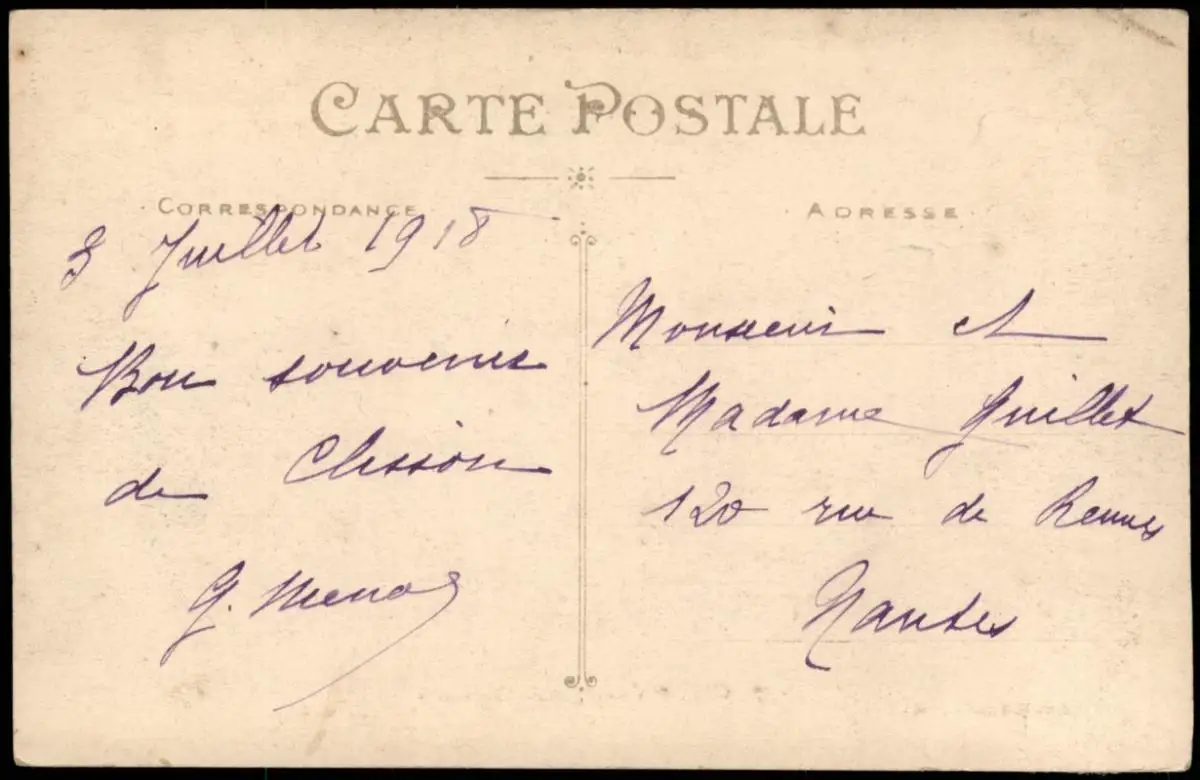 CARTE POSTALE
CORRESPONDANCE
ADRESSE
3 Juillet 1918
Bon souvenir
de Clisson
G.
Monsieur et
Madame Guillet
120 rue de Rennes
Nantes